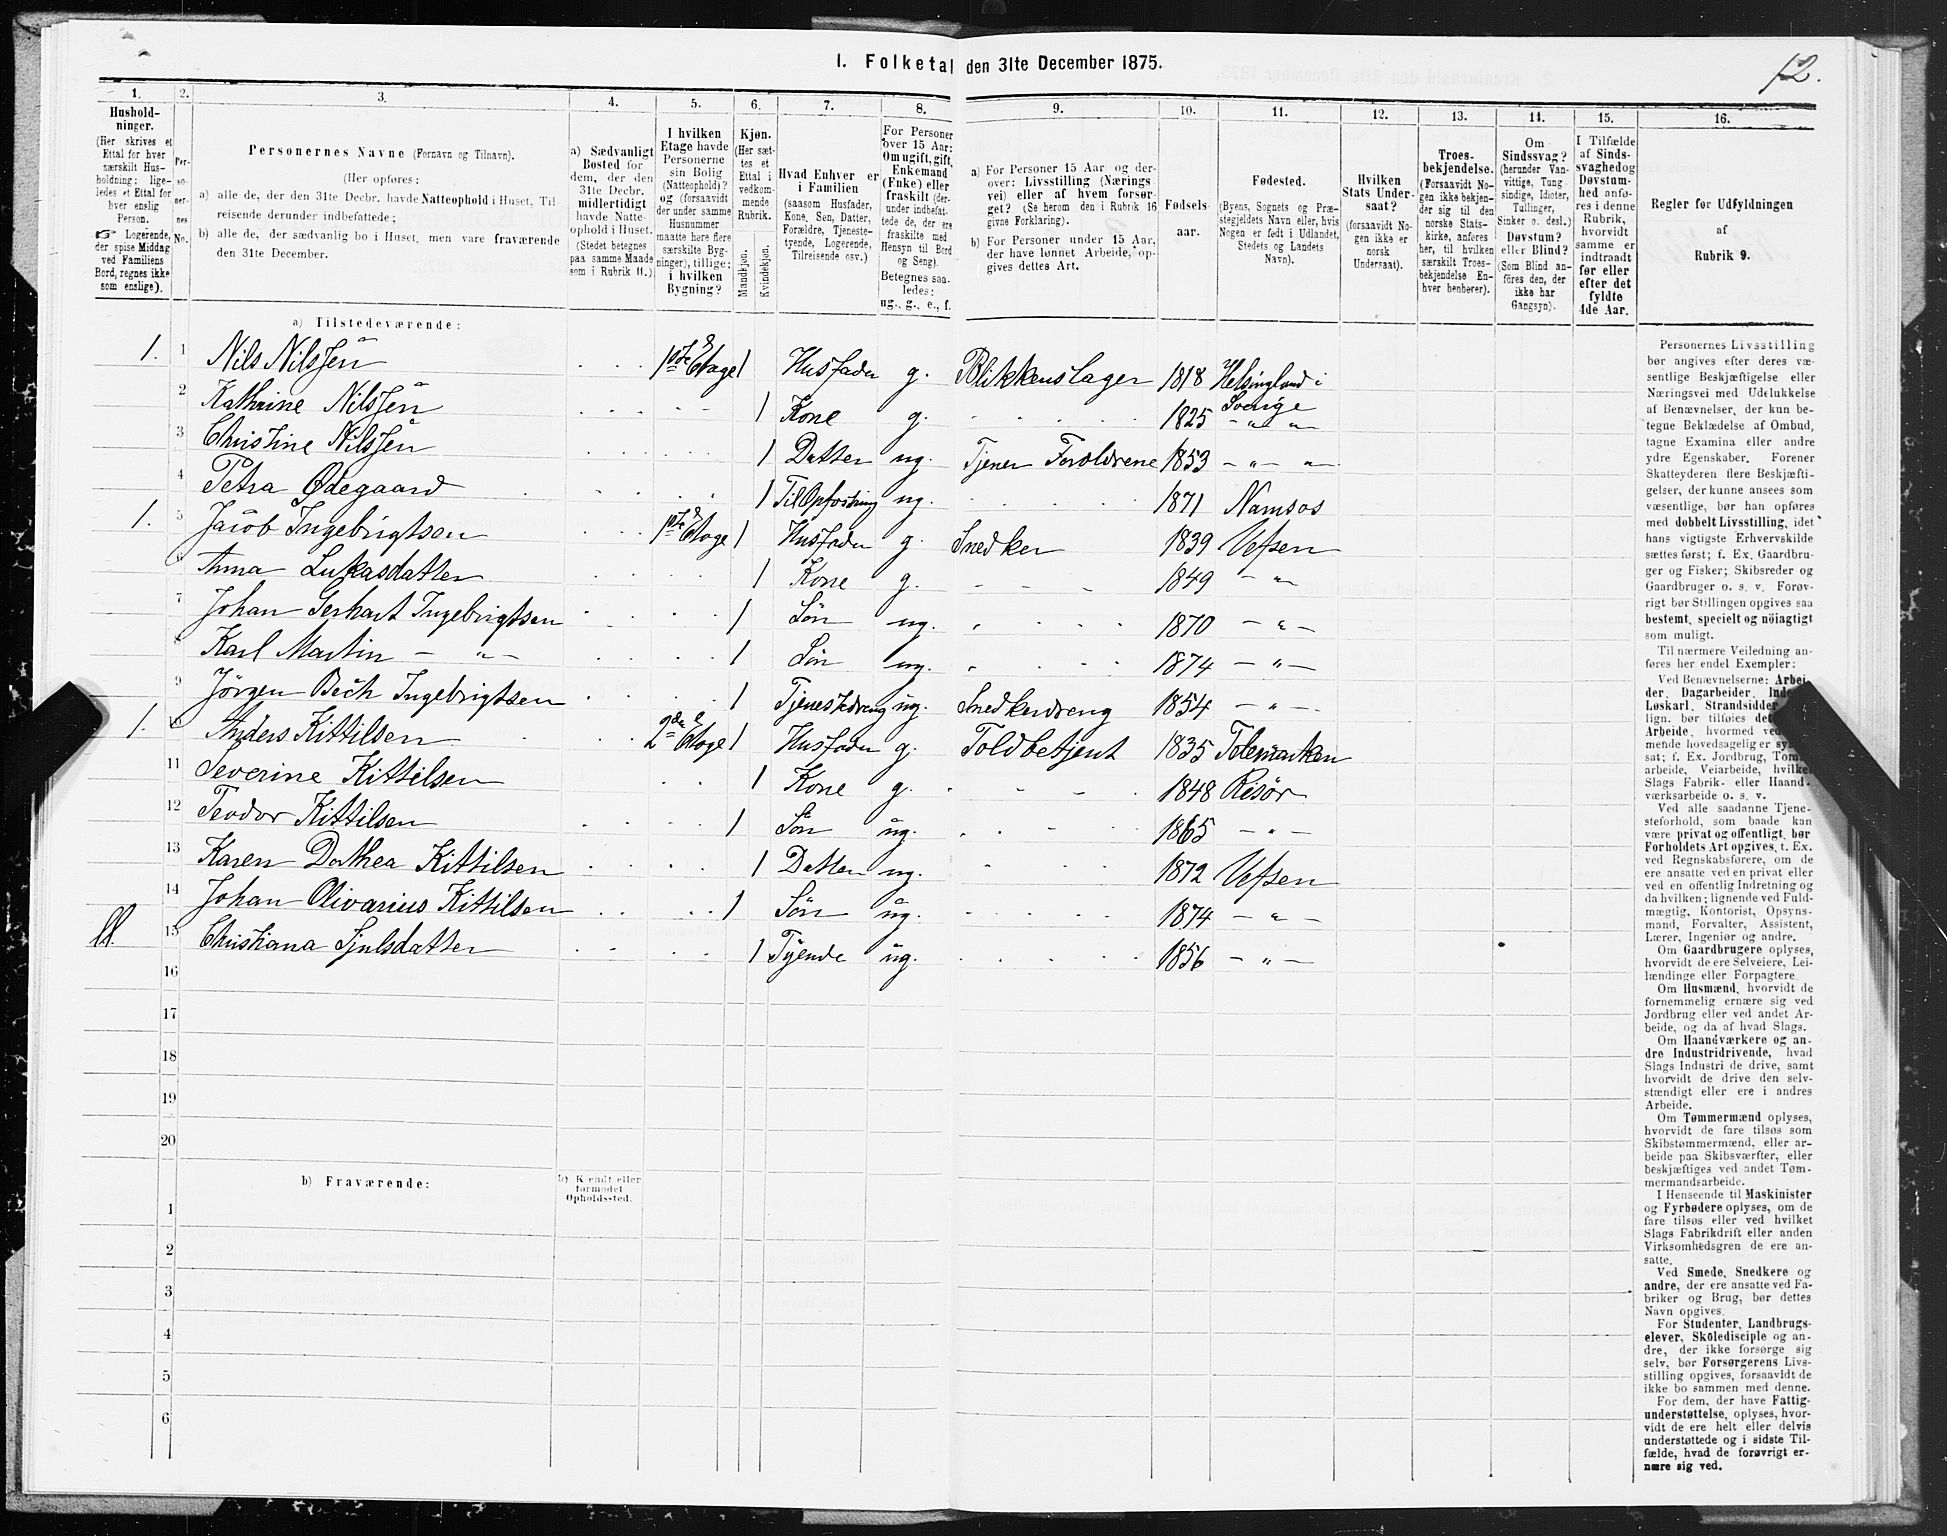 I. Folketal den 31te December 1875.
12.
1.
Hushold-
ninger.
(Her skrives et
Ettal for hver
særskilt Hus-
holdning; lige-
ledes et Ettal for
hver enslig
Person.
☞ Logerende,
der spise Middag
ved Familiens
Bord, regnes ikke
som enslige).
2.
Per-
so-
ner-
nes
No.
3.
Personernes Navne (Fornavn og Tilnavn).
(Her opføres:
a) alle de, der den 31te Decbr. havde Natteophold i Huset, Til-
reisende derunder indbefattede;
b) alle de, der sædvanlig bo i Huset, men vare fraværende
den 31te December.
4.
a) Sædvanligt
Bosted for
dem, der den
31te Decbr.
midlertidigt
havde Natte-
ophold i Huset.
(Stedet betegnes
paa samme Maade
som i Rubrik 11.)
5.
I hvilken
Etage havde
Personerne
sin Bolig
(Natteophold)?
og (forsaavidt
der under samme
Husnummer
maatte høre flere
særskilte Byg-
ninger), tillige:
i hvilken
Bygning?
6.
Kjøn.
(Her sæt-
tes et
Ettal i
vedkom-
mende
Rubrik.
Mandkjøn.
Kvindekjøn.
7.
Hvad Enhver er
i Familien
(saasom Husfader,
Kone, Søn, Datter,
Forældre, Tjeneste-
tyende, Logerende,
Tilreisende osv.)
8.
For Personer
over 15 Aar:
Om ugift, gift,
Enkemand
(Enke) eller
fraskilt (der-
under indbefat-
tede de, der ere
fraskilte med
Hensyn til Bord
og Seng).
Betegnes saa-
ledes:
ug., g., e., f.
9.
a) For Personer 15 Aar og der-
over: Livsstilling (Nærings-
vei) eller af hvem forsør-
get? (Se herom den i Rubrik 16
givne Forklaring).
b) For Personer under 15 Aar,
der have lønnet Arbeide, op-
gives dettes Art.
10.
Fødsels-
aar.
11.
Fødested.
(Byens, Sognets og Præ-
stegjeldets Navn eller, hvis
Nogen er født i Udlandet,
Stedets og Landets
Navn).
12.
Hvilken
Stats Under-
saat?
(forsaavidt No-
gen ikke er
norsk
Undersaat).
13.
Troes-
bekjendelse.
(Forsaavidt No-
gen ikke bekjen-
der sig til den
norske Stats-
kirke, anføres
her, til hvilken
særskilt Troes-
bekjendelse En-
hver henhører).
14.
Om
Sindssvag?
(herunder Van-
vittige, Tung-
sindige, Idioter,
Tullinger,
Sinker o. desl.)
Døvstum?
eller Blind?
(Som Blind an-
føres den, der
ikke har
Gangsyn).
15.
I Tilfælde
af Sinds-
svaghed og
Døvstum-
hed anfø-
res i denne
Rubrik,
hvorvidt
samme er
indtraadt
før eller
efter det
fyldte
4de Aar.
16.
Regler for Udfyldningen
af
Rubrik 9.
a) Tilstedeværende:
1. 1 Nils Nilssen 1ste Etage 1 Husfader g. Blikkenslager 1818 Helsingland i
Sverige
2 Kathrine Nilssen 1 Kone g. 1825 - " "
3 Christine Nilssen 1 Datter ug. Tjener Forældrene 1853 - " - "
4 Petra Ødegaard 1 Til Opfostring ug. 1871 Namsos
1. 5 Jacob Ingebrigtsen 1ste Etage 1 Husfader g. Snedker 1839 Vefsen
6 Anna Lukasdatter 1 Kone g. 1849 - " -
7 Johan Gerhart Ingebrigtsen 1 Søn ug. 1870 - " -
8 Karl Martin - " - 1 Søn ug. 1874 - " -
9 Jörgen Bech Ingebrigtsen 1 Tjenestedreng ug. Snedkerdreng 1854 - " -
1. 10 Anders Kittilsen 2den Etage 1 Husfader g. Toldbetjent 1835 Telemarken
11 Severine Kittilsen 1 Kone g. 1848 Risør
12 Teodor Kittilsen 1 Søn ug. 1865 - " -
13 Karen Dorthea Kittilsen 1 Datter ug. 1872 Vefsen
14 Johan Olivarius Kittilsen 1 Søn ug. 1874 - " -
15 Christiana Sjulsdatter 1 Tyende ug. 1856 - " -
16
17
18
19
20
b) Fraværende:
b) Kjendt eller
formodet
Opholdssted.
1
2
3
4
5
6
Personernes Livsstilling
bør angives efter deres væ-
sentlige Beskjæftigelse eller
Næringsvei med Udelukkelse
af Benævnelser, der kun be-
tegne Beklædelse af Ombud,
tagne Examina eller andre
ydre Egenskaber. Forener
Skatteyderen flere Beskjæfti-
gelser, der kunne ansees som
væsentlige, bør han opføres
med dobbelt Livsstilling, idet
hans vigtigste Erhvervskilde
sættes først; f. Ex. Gaardbru-
ger og Fisker; Skibsreder og
Gaardbruger o. s. v. Forøv-
rigt bør Stillingen opgives saa
bestemt, specielt og nöiagtigt
som muligt.
Til nærmere Veiledning an-
føres her endel Exempler:
Ved Benævnelserne: Arbei-
der, Dagarbeider,
Løskarl, Strandsidder
lign. bør tilføies
Arbeide, hvormed
mende hovedsagelig er
sat; f. Ex. Jordbrug,
arbeide, Veiarbeide, hvilket
Slags Fabrik- eller Haand-
værksarbeide o. s. v.
Ved alle saadanne Tjene-
steforhold, som baade kan
være privat og offentligt, bør
Forholdets Art opgives, t. Ex.
ved Regnskabsførere, om de
ere ansatte ved en privat eller
ved en offentlig Indretning og
da hvilken; lignende ved Fuld-
mægtig, Kontorist, Opsyns-
mand, Forvalter, Assistent,
Lærer, Ingeniør og andre.
Om Gaardbrugere oplyses,
hvorvidt de ere Selveiere, Lei-
lændinge eller Forpagtere.
Om Husmænd, hvorvidt de
fornemmelig ernære sig ved
Jordbrug eller ved andet Ar-
beide, og da af hvad Slags.
Om Haandværkere og an-
dre Industridrivende, hvad
Slags Industri de drive, samt
hvorvidt de drive den selv-
stændigt eller ere i andres
Arbeide.
Om Tømmermænd oplyses,
hvorvidt de fare tilsøs som
Skibstømmermænd, eller ar-
beide paa Skibsværfter, eller
beskjæftiges ved andet Tøm-
mermandsarbeide.
I Henseende til Maskinister
og Fyrbødere oplyses, om de
fare tilsøs eller ved hvilket
Slags Fabrikdrift eller anden
Virksomhedsgren de ere an-
satte.
Ved Smede, Snedkere og
andre, der ere ansatte ved Fa-
briker og Brug, bør dettes
Navn opgives.
For Studenter, Landbrugs-
elever, Skoledisciple og an-
dre, der ikke forsørge sig
selv, bør Forsørgerens Livs-
stilling opgives, forsaavidt de
ikke bo sammen med denne.
For dem, der have Fattig-
understøttelse, oplyses, hvor-
vidt de ere helt eller delvis
understøttede og i sidste Til-
fælde, hvad de forøvrigt er-
nære sig ved.